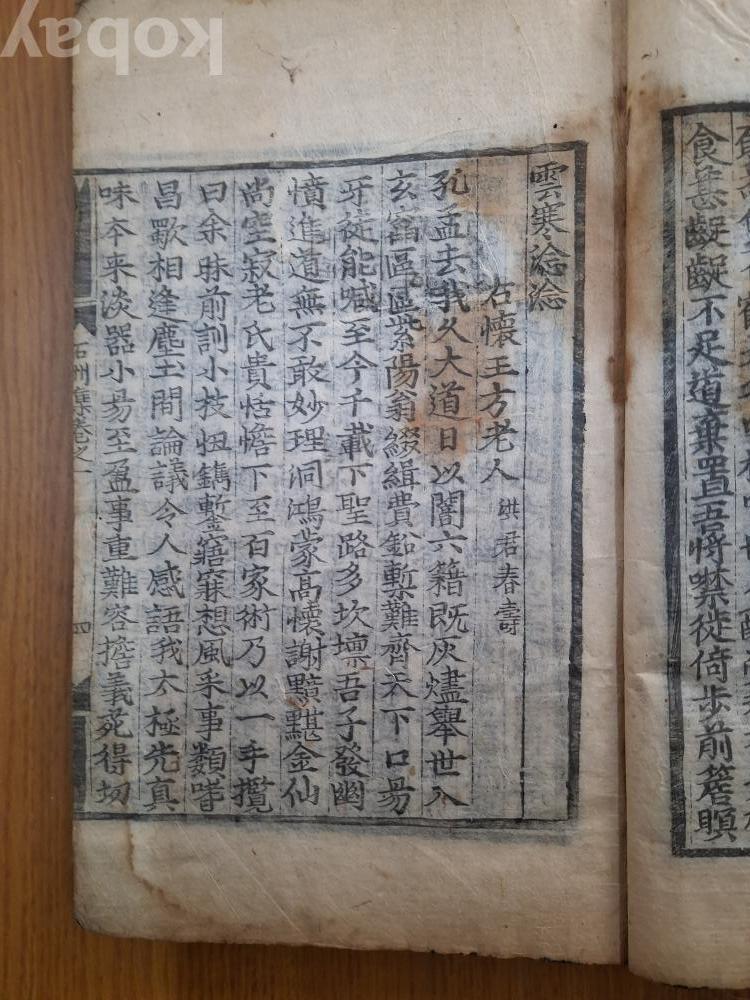 食甚齪齪不足道棄置吾將噤徙倚步前簷瞑
雲寒淰淰
右懷王方老人 洪君春壽
孔孟去我久大道日以闇六籍既灰燼舉世入
玄窞區區紫陽翁綴緝費鉛槧難齊天下口易
牙徒能喊至今千載下聖路多坎壈吾子發幽
憤進道無不敢妙理洞鴻蒙高懷謝黯黮金仙
尚空寂老氏貴恬憺下至百家術乃以一手攬
曰余昧前訓小技忸鐫鏨寤寐想風采事類嗜
昌歜相逢塵土間論議令人感語我太極先真
味本来淡器小易至盈事重難容擔義苑得切
石州集卷之一 四
kobay